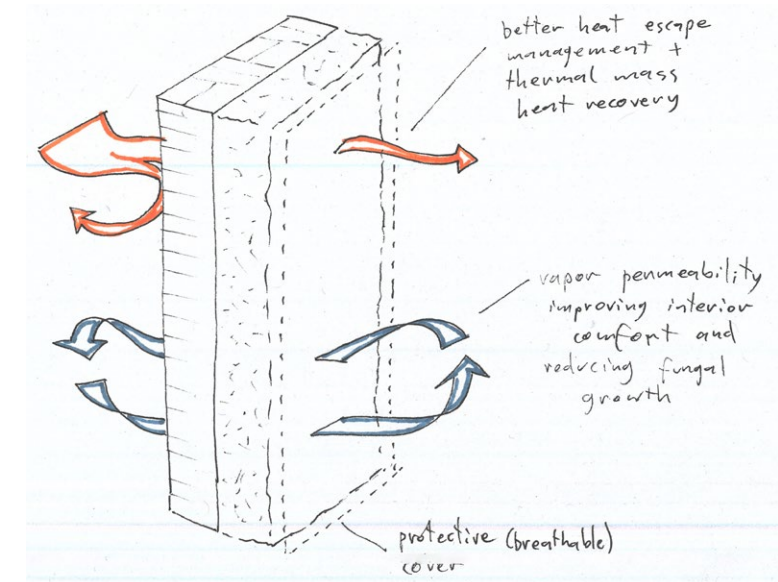 better heat escape
management +
thermal mass
heat recovery
vapor permeability
improving interior
comfort and
reducing fungal
growth
protective (breathable)
cover